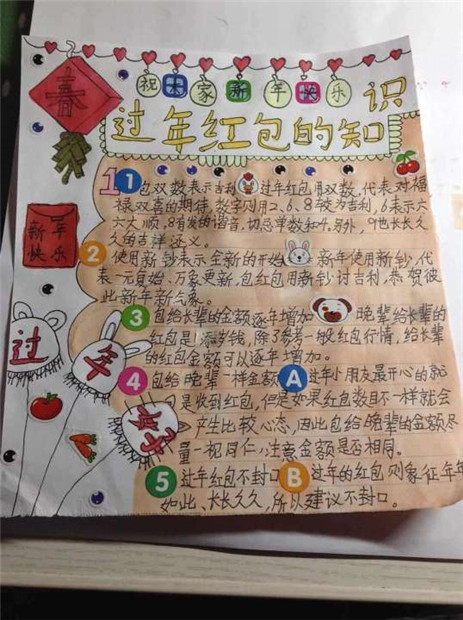 祝大家新年快乐
春
过年红包的知识
1 1 包双数表示吉利 过年红包用双数,代表对福
禄双喜的期待,数字则用2、6、8较为吉利,6表示六
六大顺,8有发的谐音,切忌单数和4。另外,9也长长久
久的吉祥涵义。
新年
快乐
2 使用新钞表示全新的开始 新年使用新钞,代
表一元复始、万象更新,包红包用新钞讨吉利,恭贺彼
此新年新气象。
3 包给长辈的金额逐年增加 晚辈给长辈的
红包是添岁钱,除了参考一般红包行情,给长辈
的红包金额可以逐年增加。
过
年
4 包给晚辈一样金额 A 过年小朋友最开心的
是收到红包,但是如果红包数目不一样就会
产生比较心态,因此包给晚辈的金额尽
量一视同仁,注意金额是否相同。
5 过年红包不封口 B 过年的红包则象征年年
如此、长长久久,所以建议不封口。